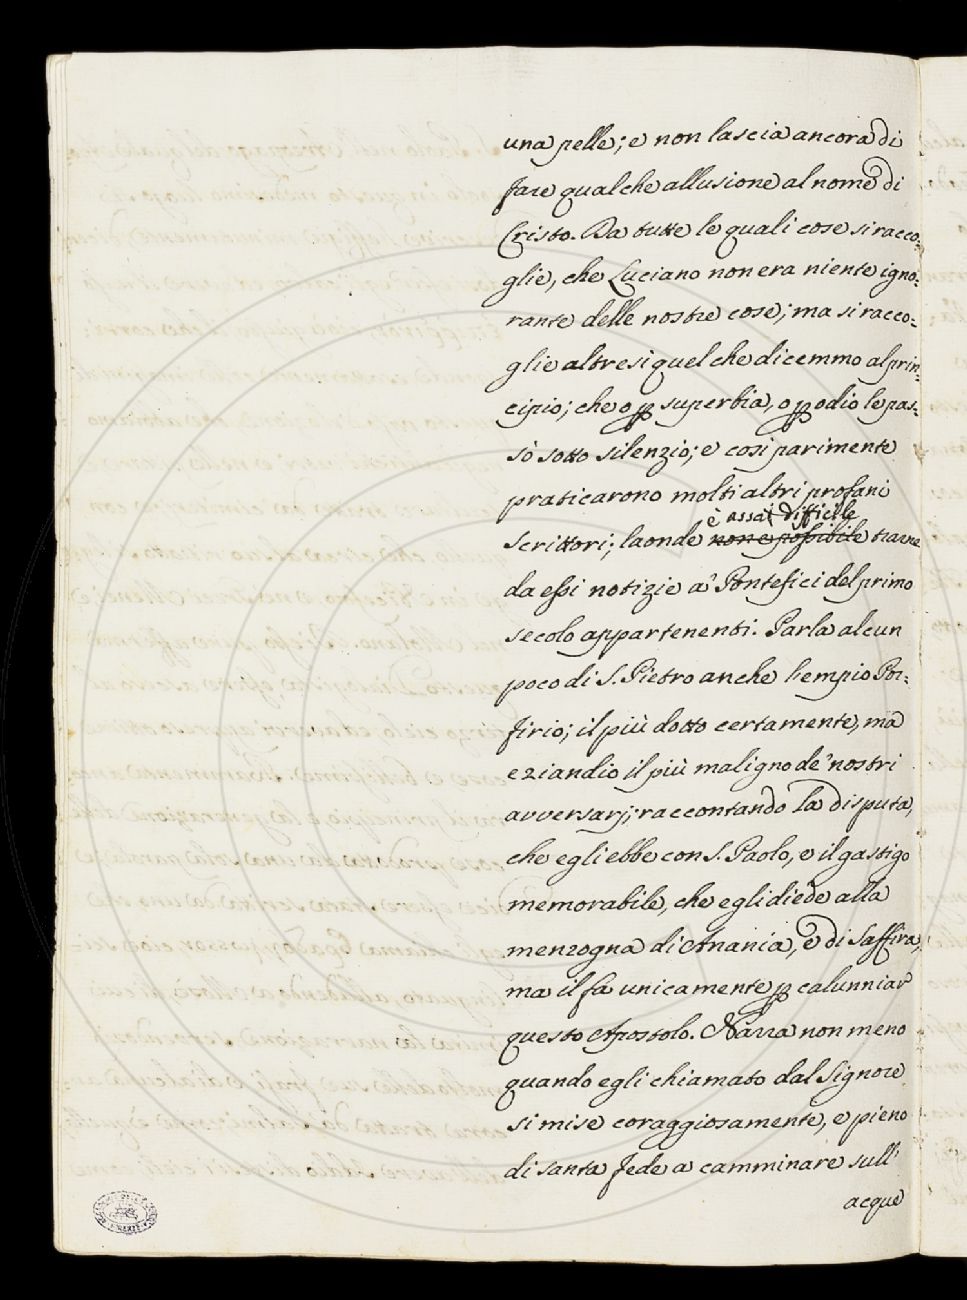 una pelle; e non lascia ancora di
fare qualche allusione al nome di
Cristo. Da tutte le quali cose si racco-
glie, che Luciano non era niente igno-
rante delle nostre cose; ma si racco-
glie altresi quel che dicemmo al prin-
cipio; che o p superbia, o p odio le pas-
sò sotto silenzio; e così parimente
praticarono molti altri profani
è assai difficile
scrittori; laonde non e possibile trarne
da essi notizie a' Pontefici del primo
secolo appartenenti. Parla alcun
poco di S. Pietro anche l'empio Por-
firio; il più dotto certamente, ma
eziandio il più maligno de' nostri
avversarj; raccontando la disputa,
che egli ebbe con S. Paolo, e il gastigo
memorabile, che egli diede alla
menzogna di Anania, e di Saffira,
ma il fa unicamente p calunniar
questo Apostolo. Narra non meno
quando egli chiamato dal Signore
si mise coraggiosamente, e pieno
di santa fede a camminare sull'
acque